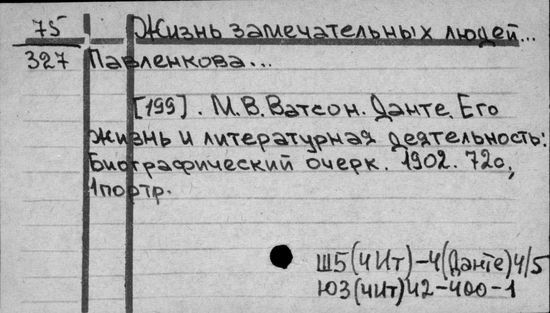 75 Жизнь замечательных людей...
327 Павленкова...
[199]. М.В.Ватсон. Данте. Его
жизнь и литературная деятельность:
Биографический очерк. 1902. 72с,
1портр.
Ш5(4Ит)-4(Данте)4/5
Ю3(4Ит)42-400-1